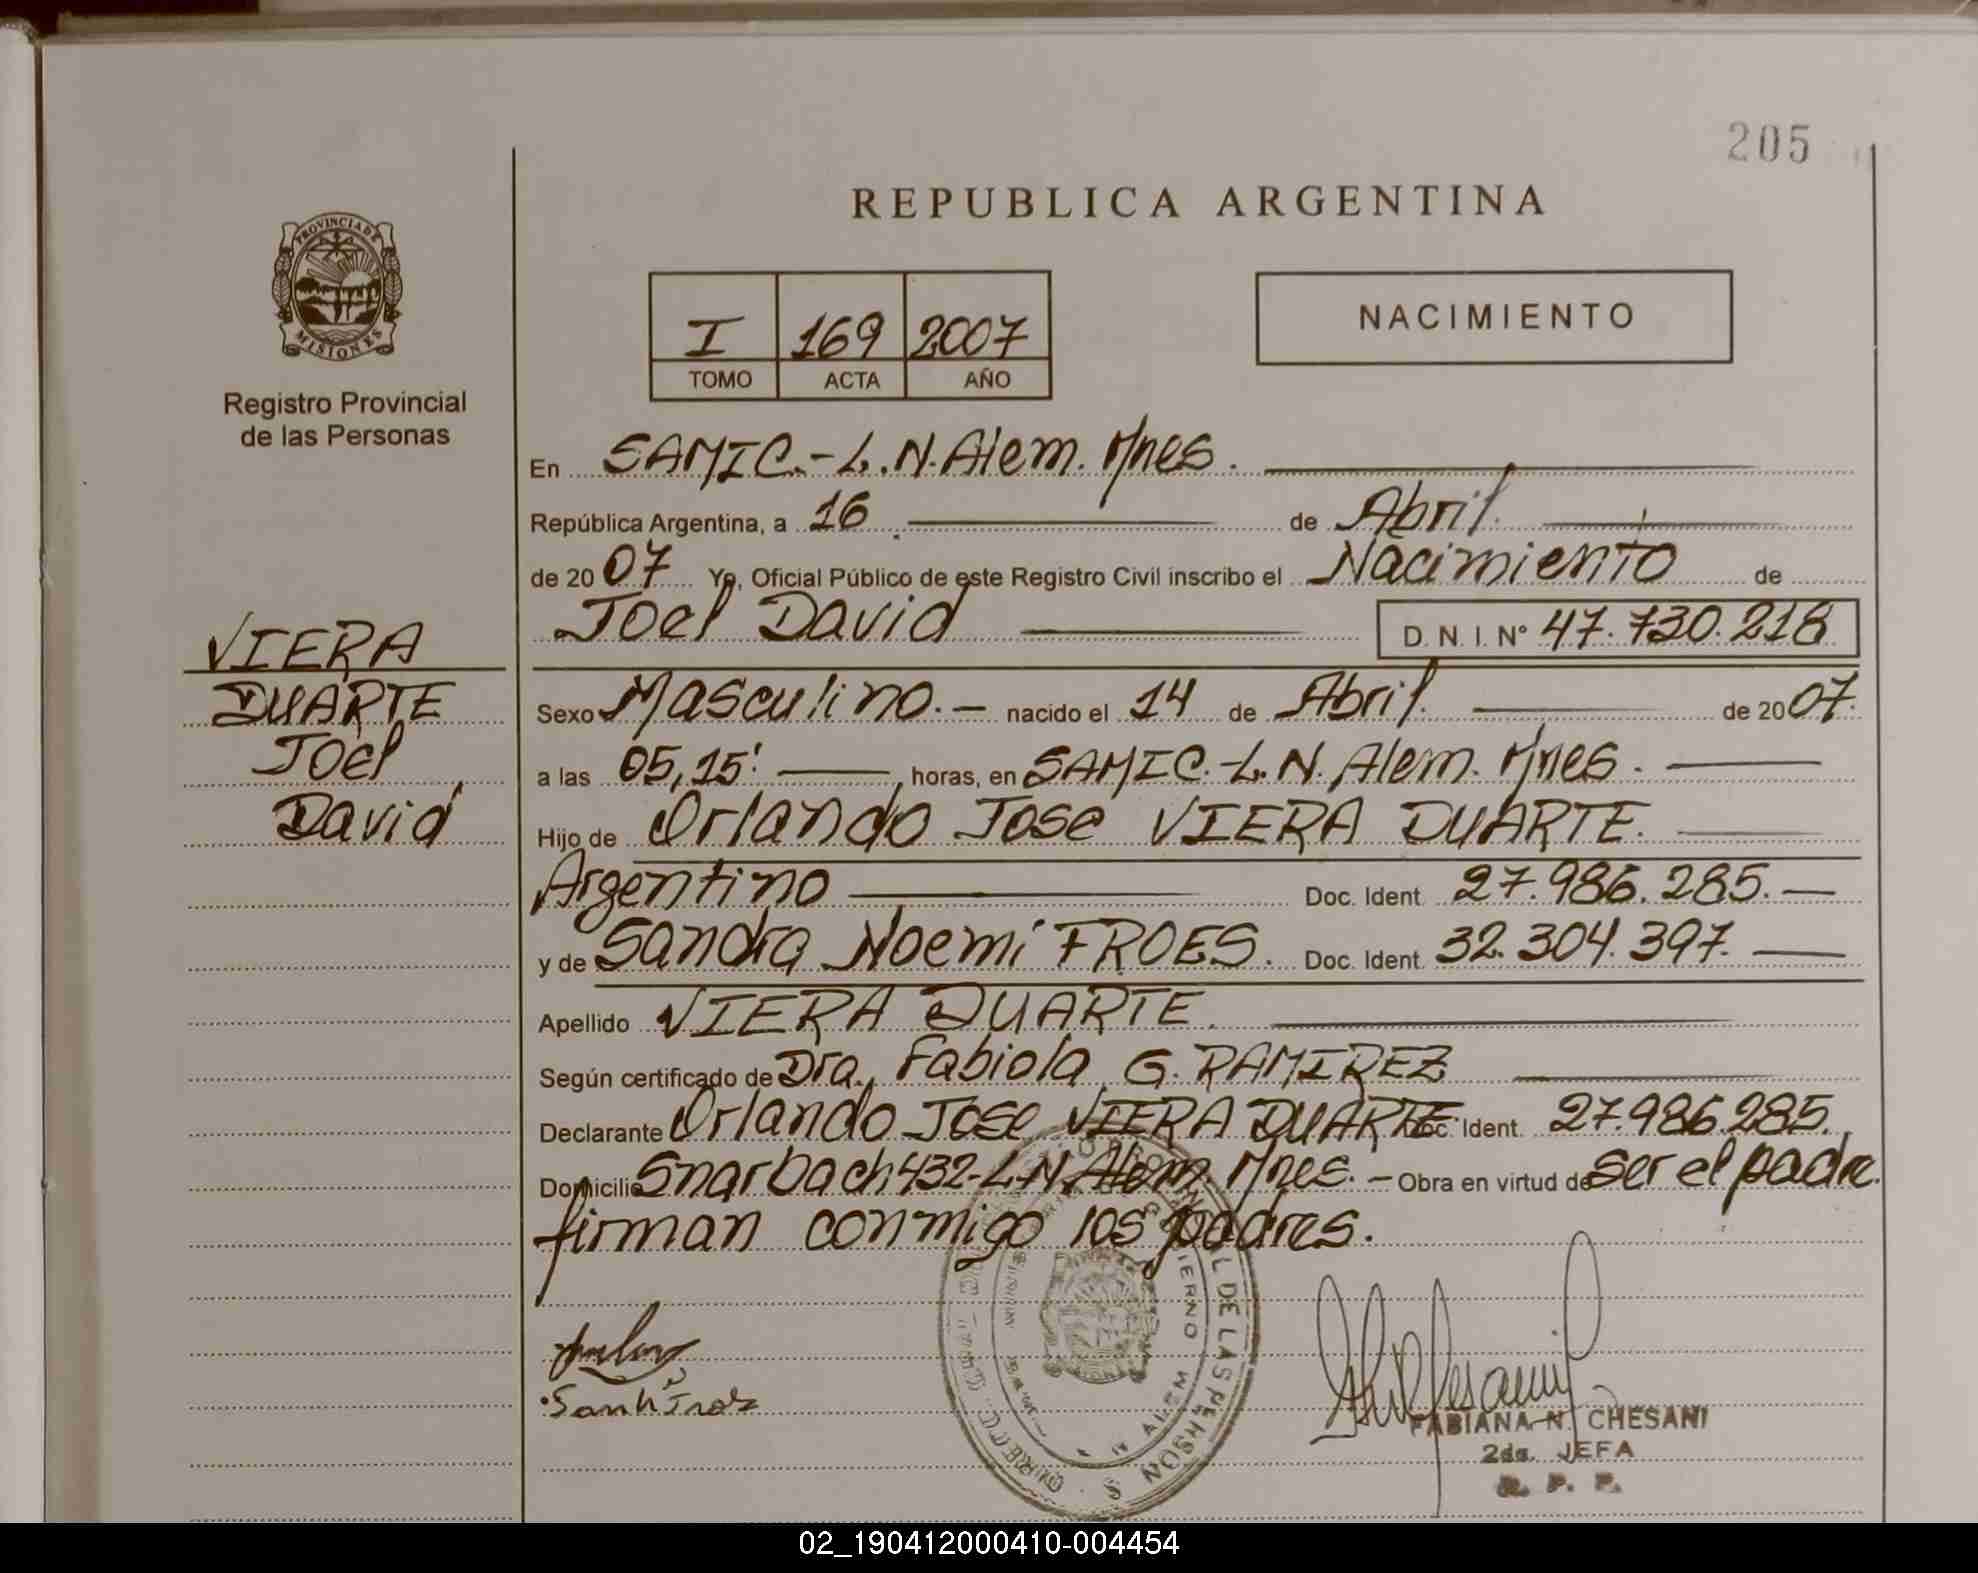 205
REPUBLICA ARGENTINA
PROVINCIA DE
MISIONES
Registro Provincial
de las Personas
I 169 2007
TOMO ACTA AÑO
NACIMIENTO
VIERA
DUARTE
Joel
David
En SAMIC.- L.N. Alem. Mnes.
República Argentina, a 16 de Abril.
de 2007 Yo, Oficial Público de este Registro Civil inscribo el Nacimiento de
Joel David D. N. I. N° 47.730.218
Sexo Masculino.- nacido el 14 de Abril. de 2007.
a las 05,15' horas, en SAMIC.-L.N. Alem. Mnes.
Hijo de Orlando Jose VIERA DUARTE.
Argentino Doc. Ident. 27.986.285.
y de Sandra Noemi FROES. Doc. Ident. 32.304.397.
Apellido VIERA DUARTE.
Según certificado de Dra. Fabiola G. RAMIREZ
Declarante Orlando Jose VIERA DUARTE Doc. Ident. 27.986.285.
Domicilio Snarbach 432-L.N. Alem. Mnes.- Obra en virtud de ser el padre.
firman conmigo los padres.
FABIANA N. CHESANI
2da. JEFA
R. P. P.
02_190412000410-004454